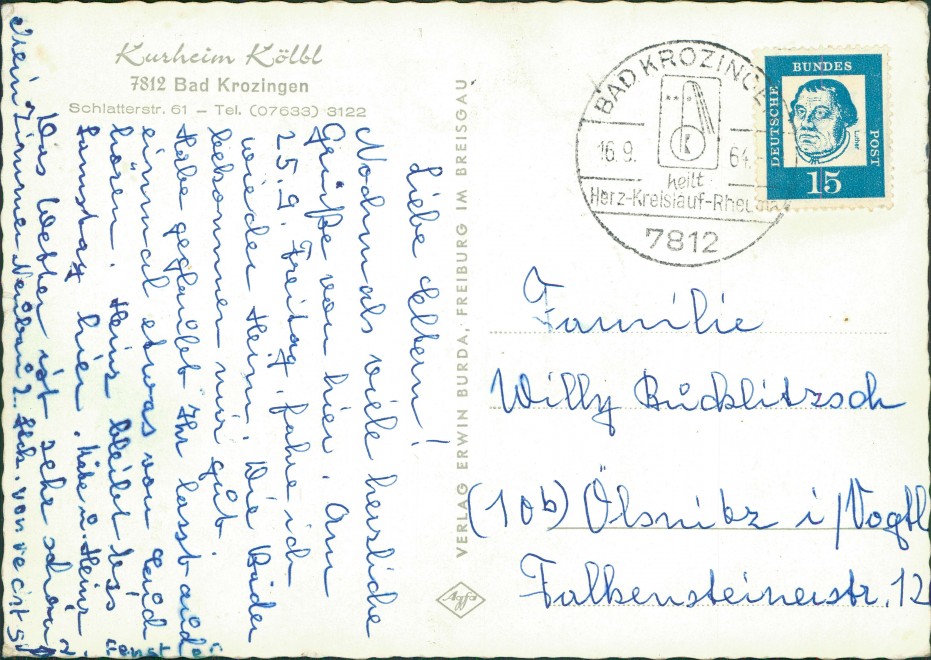 Kurheim Kölbl
7812 Bad Krozingen
Schlatterstr. 61 – Tel. (07633) 3122
Liebe Eltern!
Nochmals viele herzliche
Grüße von hier. Am
25.9. Freitag fahre ich
wieder heim. Die Bäder
bekommen mir gut.
Habe geglaubt Ihr lasst auch
einmal etwas von Euch
hören. Heinz bleibt bis
Samstag hier. Käte u. Heinz
Das Wetter ist sehr schön
Mein Zimmer Neubau 2. Stck. von rechts
2. Fenst
VERLAG ERWIN BURDA, FREIBURG IM BREISGAU
Agfa
BAD KROZINGEN
16.9. 64
heilt
Herz-Kreislauf-Rheuma
7812
DEUTSCHE
BUNDES
POST
Luther
15
Familie
Willy Bücklitzsch
(10b) Ölsnitz i/Vogtl
Falkensteinerstr. 12